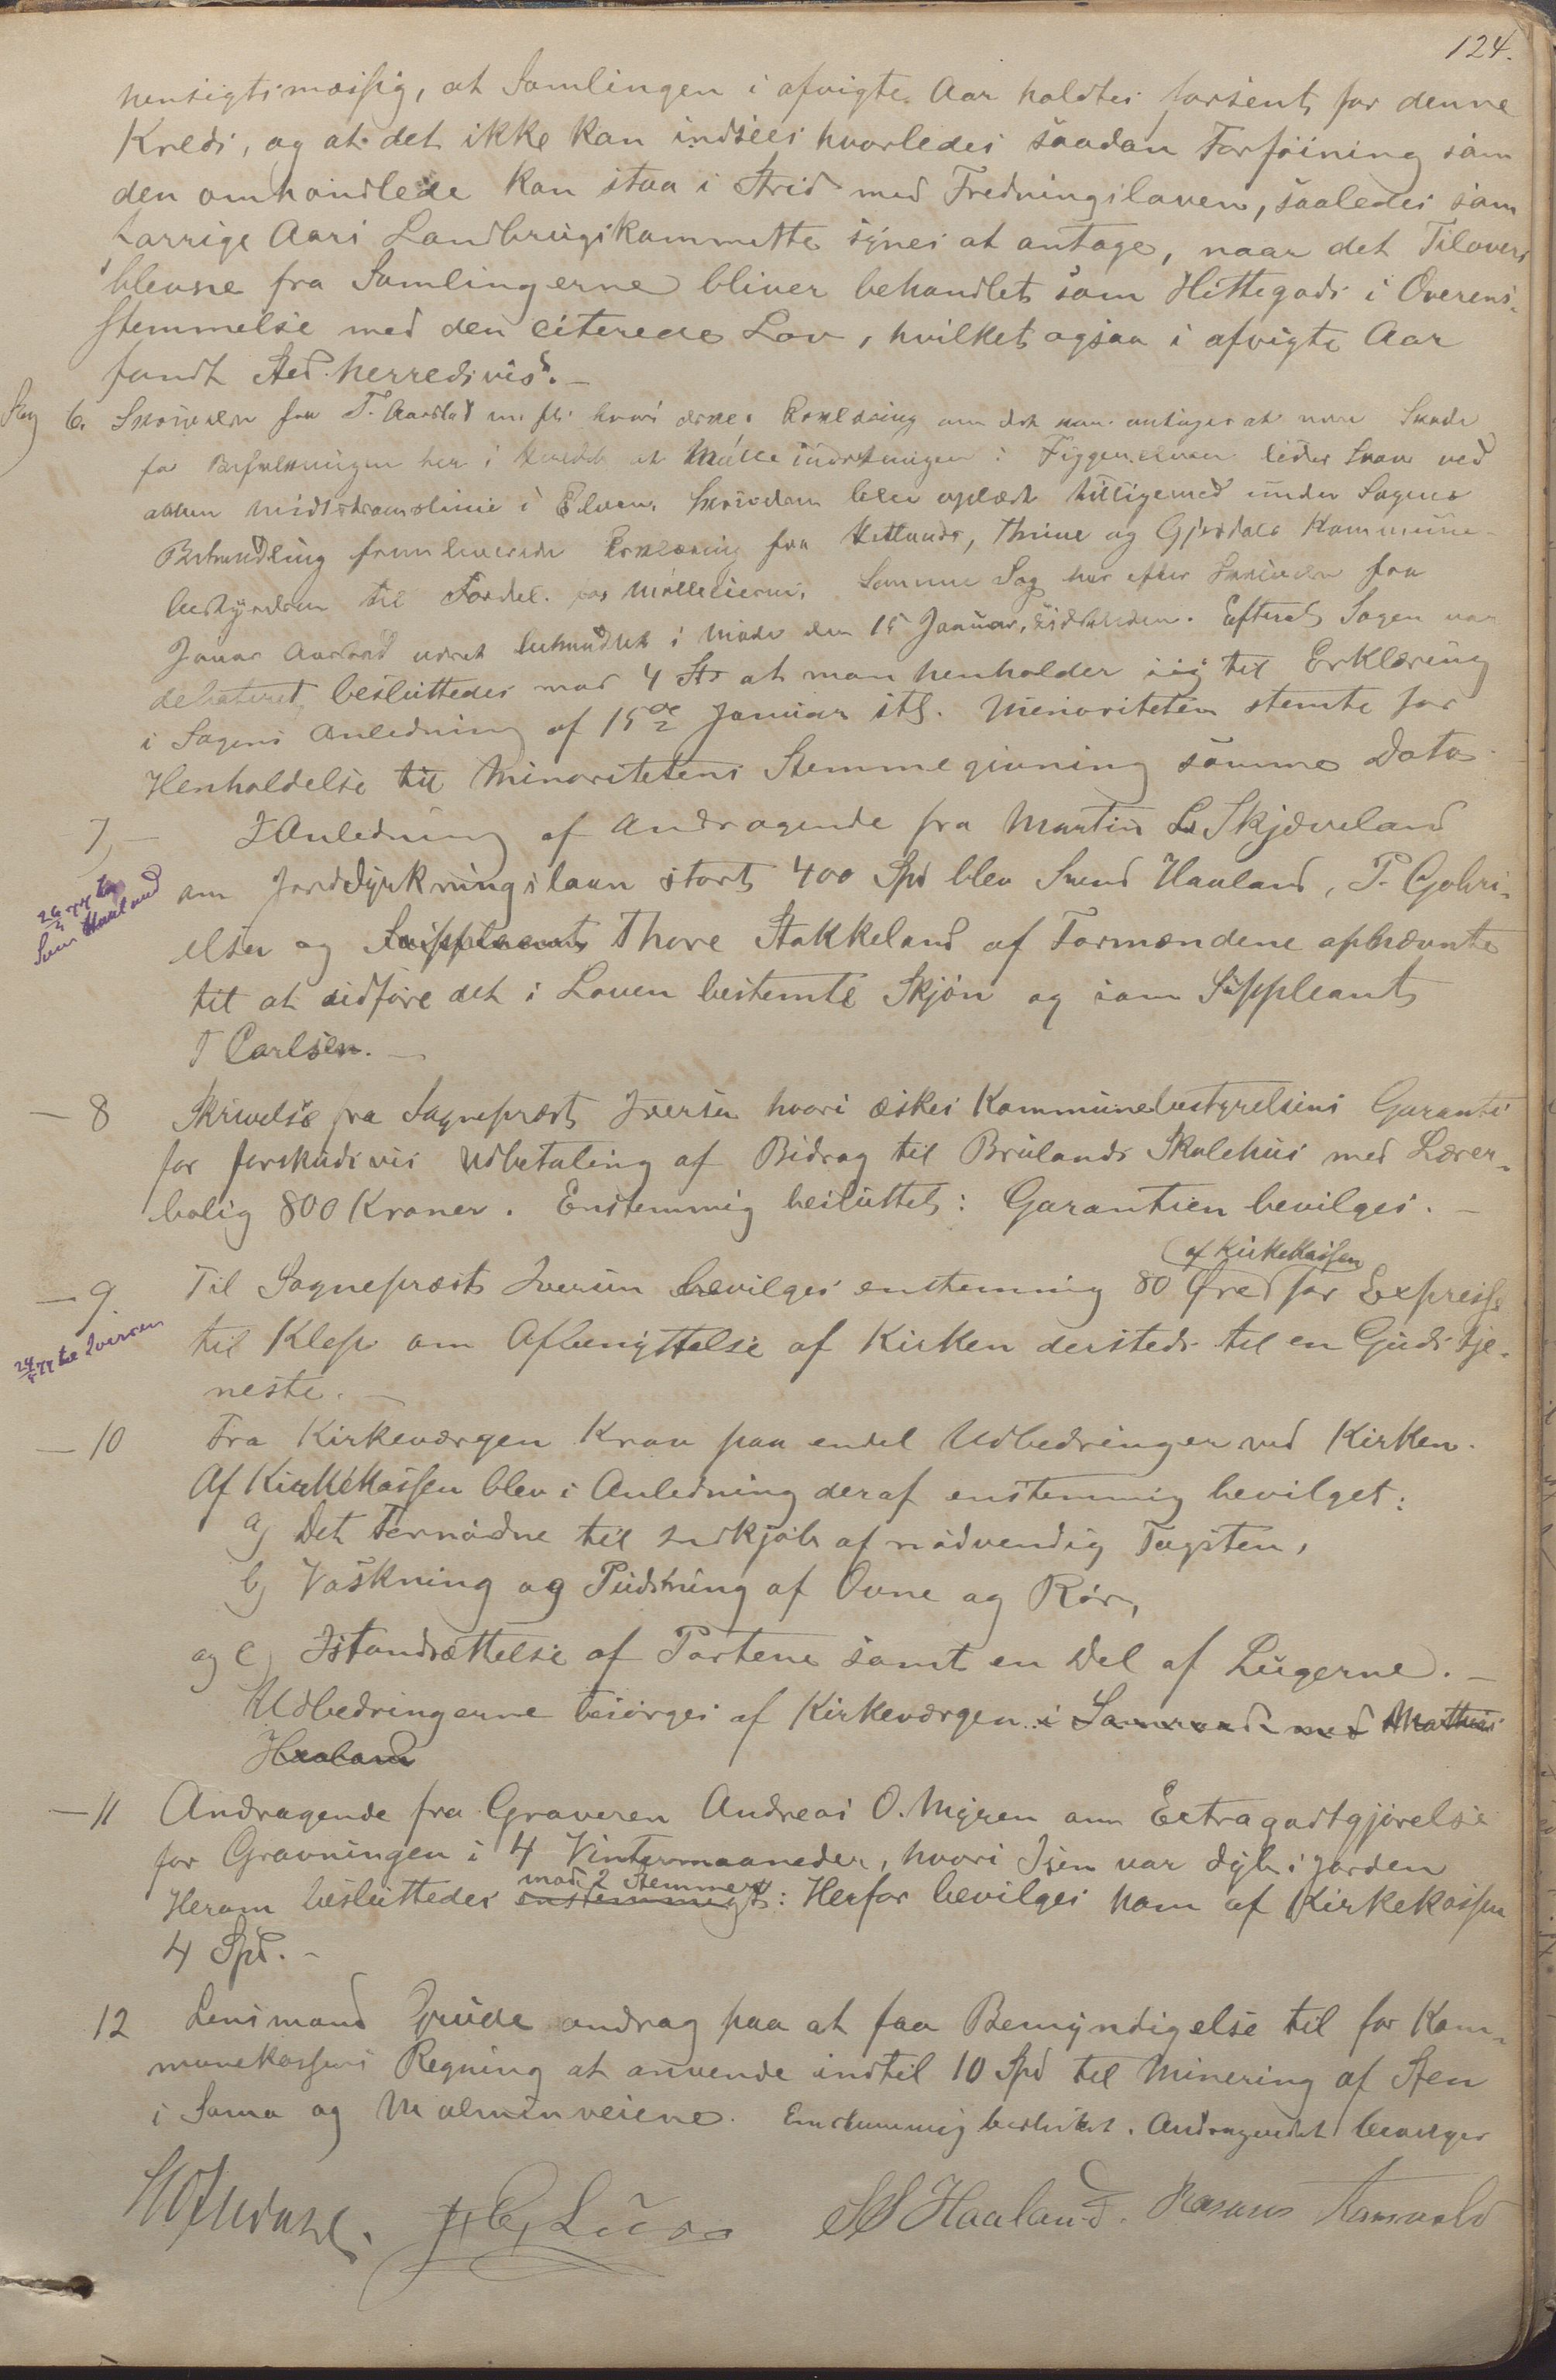 124.
hensigtsmæssig, at Samlingen i afvigte Aar holdtes forsent for denne
Kreds, og at det ikke kan indsees hvorledes saadan Forføining som
den omhandlede kan staa i Strid med Fredningsloven, saaledes som
forrige Aars Landbrugskommitte synes at antage, naar det Tilovers
blevne fra Samlingerne bliver behandlet som Hittegods i Overens-
stemmelse med den citerede Lov, hvilket ogsaa i afvigte Aar
fandt Sted herredsvis.
Sag 6. Skrivelse fra T. Aarstad m. fl. hvori æskes Erklæring om det kan antages at være Skade
for Befolkningen her i Herredet at Mølleindretningen i Figgenelven lider Skade ved
aaben Midtstrømslinie i Elven. Skrivelsen blev oplæst tilligemed under Sagens
Behandling fremleverede Erklæring fra Hetlands, Thime og Gjesdals Kommune-
bestyrelsen til Fordel for Mølleeierne. Samme Sag har efter Skrivelse fra
Jonas Aarstad været behandlet i Møde den 15 Januar sidstleden. Efterat Sagen var
debateret, besluttedes mod 4 St at man henholder sig til Erklæring
i Sagens Anledning af 15de Januar sts. Minoriteten stemte for
Henholdelse til Minoritetens Stemmegivning samme Dato
7, I Anledning af Andragende fra Martin L. Skjæveland
om Jorddyrkningslaan stort 400 Spd blev Svend Haaland, P. Gabri-
26/2 77 til
Sven Haaland
elsen og Suppleant Thore Stokkeland af Formændene opnævnte
til at udføre det i Loven bestemte Skjøn og som Suppleant
T Carlsen.
8 Skrivelse fra Sognepræst Iversen hvori æskes Kommunebestyrelsens Garanti
for forskudsvis Udbetaling af Bidrag til Brulands Skolehus med Lærer-
bolig 800 Kroner. Enstemmig besluttet: Garantien bevilges.
(af Kirkekassen
9. Til Sognepræst Iversen bevilges enstemmig 80 Øre for Expresse
24/ 77 til Iversen
til Klep om Afbenyttelse af Kirken dersteds til en Gudstje-
neste.
10 Fra Kirkeværgen Krav paa endel Udbedringer ved Kirken.
Af Kirkekassen blev i Anledning deraf enstemmig bevilget:
a) Det Fornødne til Indkjøb af nødvendig Tagsten,
b) Vaskning og Pudsning af Ovne og Rør,
og c) Istandsættelse af Portene samt en Del af Lugerne.
Udbedringerne besørges af Kirkeværgen i Samraad med Mathias
Haaland
11 Andragende fra Graveren Andreas O. Myren om Extragodtgjørelse
for Gravningen i 4 Vintermaaneder, hvori Isen var dyb i Jorden
mod 2 Stemmer
Herom besluttedes enstemmigt: Herfor bevilges ham af Kirkekassen
4 Spd.
12 Lensmand Grude androg paa at faa Bemyndigelse til for Kom-
munekassens Regning at anvende indtil 10 Spd til Minering af Sten
i Soma og Malmenveiene. Enstemmig besluttet. Andragendet bevilges
S S Haaland. Rasmus Aanevold